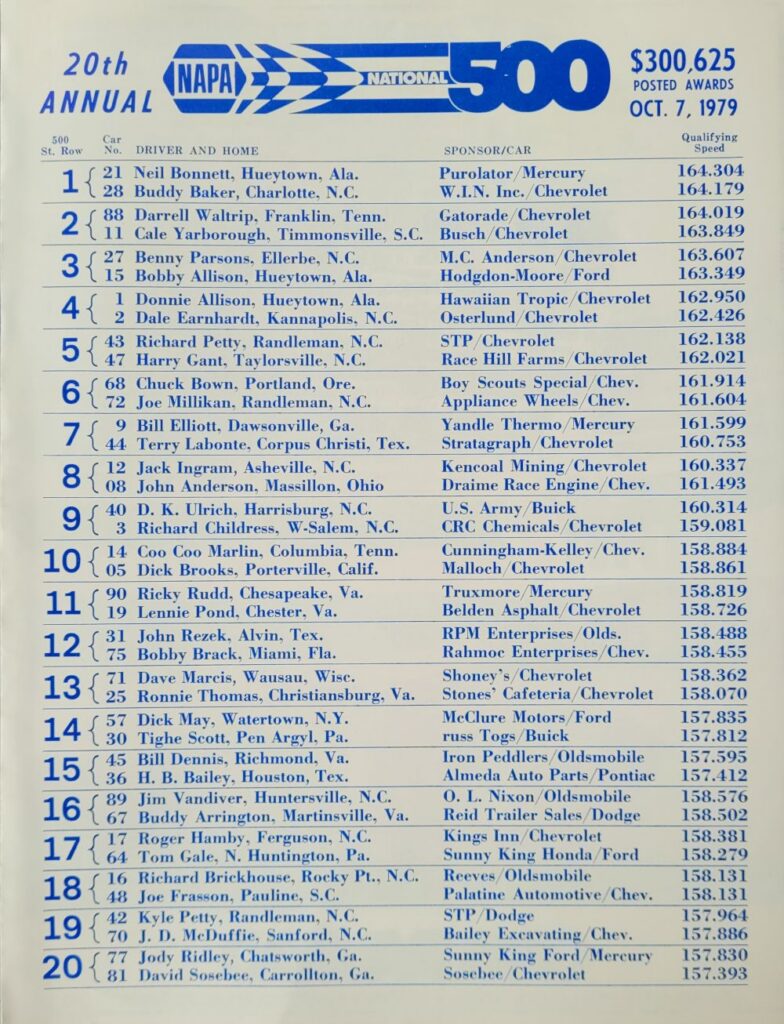 20th ANNUAL
NAPA NATIONAL 500
$300,625
POSTED AWARDS
OCT. 7, 1979
500 St. Row Car No. DRIVER AND HOME SPONSOR/CAR Qualifying Speed
1 { 21 Neil Bonnett, Hueytown, Ala. Purolator/Mercury 164.304
28 Buddy Baker, Charlotte, N.C. W.I.N. Inc./Chevrolet 164.179
2 { 88 Darrell Waltrip, Franklin, Tenn. Gatorade/Chevrolet 164.019
11 Cale Yarborough, Timmonsville, S.C. Busch/Chevrolet 163.849
3 { 27 Benny Parsons, Ellerbe, N.C. M.C. Anderson/Chevrolet 163.607
15 Bobby Allison, Hueytown, Ala. Hodgdon-Moore/Ford 163.349
4 { 1 Donnie Allison, Hueytown, Ala. Hawaiian Tropic/Chevrolet 162.950
2 Dale Earnhardt, Kannapolis, N.C. Osterlund/Chevrolet 162.426
5 { 43 Richard Petty, Randleman, N.C. STP/Chevrolet 162.138
47 Harry Gant, Taylorsville, N.C. Race Hill Farms/Chevrolet 162.021
6 { 68 Chuck Bown, Portland, Ore. Boy Scouts Special/Chev. 161.914
72 Joe Millikan, Randleman, N.C. Appliance Wheels/Chev. 161.604
7 { 9 Bill Elliott, Dawsonville, Ga. Yandle Thermo/Mercury 161.599
44 Terry Labonte, Corpus Christi, Tex. Stratagraph/Chevrolet 160.753
8 { 12 Jack Ingram, Asheville, N.C. Kencoal Mining/Chevrolet 160.337
08 John Anderson, Massillon, Ohio Draime Race Engine/Chev. 161.493
9 { 40 D. K. Ulrich, Harrisburg, N.C. U.S. Army/Buick 160.314
3 Richard Childress, W-Salem, N.C. CRC Chemicals/Chevrolet 159.081
10 { 14 Coo Coo Marlin, Columbia, Tenn. Cunningham-Kelley/Chev. 158.884
05 Dick Brooks, Porterville, Calif. Malloch/Chevrolet 158.861
11 { 90 Ricky Rudd, Chesapeake, Va. Truxmore/Mercury 158.819
19 Lennie Pond, Chester, Va. Belden Asphalt/Chevrolet 158.726
12 { 31 John Rezek, Alvin, Tex. RPM Enterprises/Olds. 158.488
75 Bobby Brack, Miami, Fla. Rahmoc Enterprises/Chev. 158.455
13 { 71 Dave Marcis, Wausau, Wisc. Shoney's/Chevrolet 158.362
25 Ronnie Thomas, Christiansburg, Va. Stones' Cafeteria/Chevrolet 158.070
14 { 57 Dick May, Watertown, N.Y. McClure Motors/Ford 157.835
30 Tighe Scott, Pen Argyl, Pa. russ Togs/Buick 157.812
15 { 45 Bill Dennis, Richmond, Va. Iron Peddlers/Oldsmobile 157.595
36 H. B. Bailey, Houston, Tex. Almeda Auto Parts/Pontiac 157.412
16 { 89 Jim Vandiver, Huntersville, N.C. O. L. Nixon/Oldsmobile 158.576
67 Buddy Arrington, Martinsville, Va. Reid Trailer Sales/Dodge 158.502
17 { 17 Roger Hamby, Ferguson, N.C. Kings Inn/Chevrolet 158.381
64 Tom Gale, N. Huntington, Pa. Sunny King Honda/Ford 158.279
18 { 16 Richard Brickhouse, Rocky Pt., N.C. Reeves/Oldsmobile 158.131
48 Joe Frasson, Pauline, S.C. Palatine Automotive/Chev. 158.131
19 { 42 Kyle Petty, Randleman, N.C. STP/Dodge 157.964
70 J. D. McDuffie, Sanford, N.C. Bailey Excavating/Chev. 157.886
20 { 77 Jody Ridley, Chatsworth, Ga. Sunny King Ford/Mercury 157.830
81 David Sosebee, Carrollton, Ga. Sosebee/Chevrolet 157.393